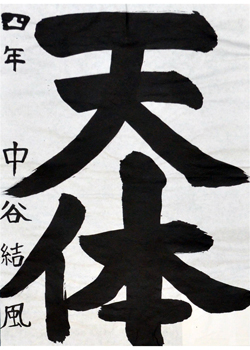 天体
四年 中谷結風